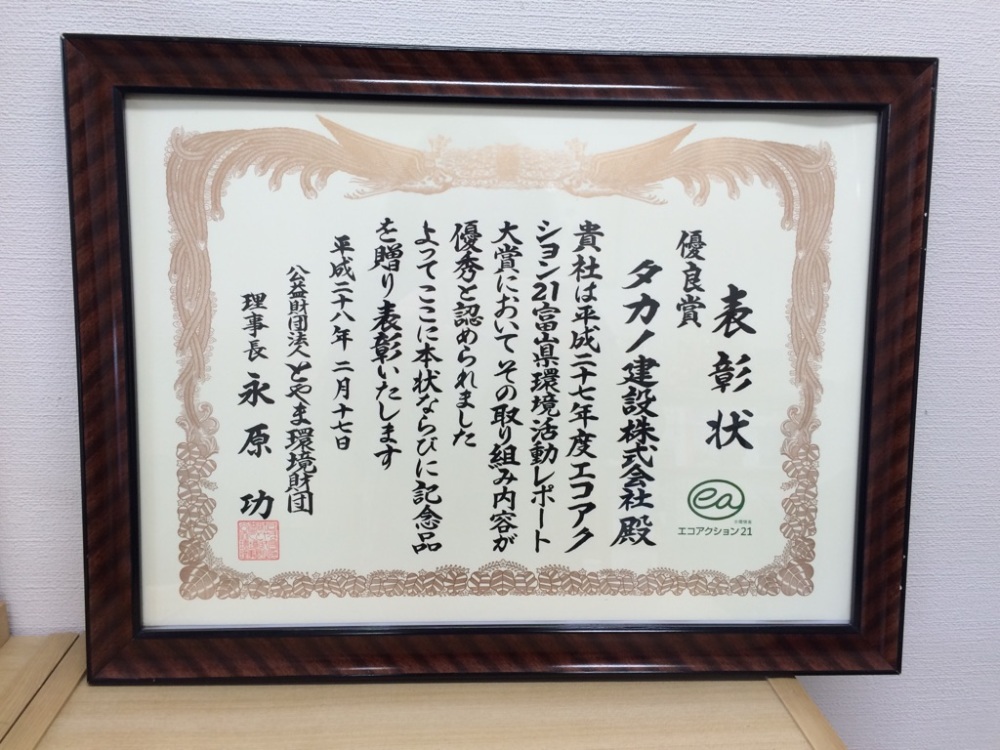 表彰状
優良賞
タカノ建設株式会社 殿
貴社は平成二十七年度エコアク
ション21富山県環境活動レポート
大賞においてその取り組み内容が
優秀と認められました
よってここに本状ならびに記念品
を贈り表彰いたします
平成二十八年 二月十七日
公益財団法人とやま環境財団
理事長 永原 功
ea
エコアクション21